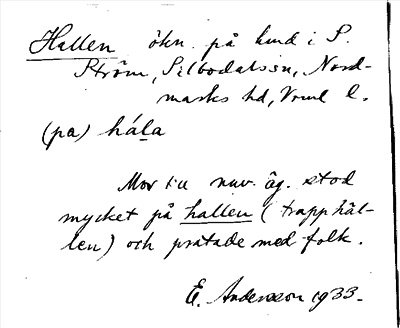 Hallen ökn. på kund i S.
Ström, Silbodalssn, Nord-
marks hd, Vrml l.
(pa) hála
Mor till nuv. äg. stod
mycket på hallen (trapphäl-
len) och pratade med folk.
E. Andersson 1933.